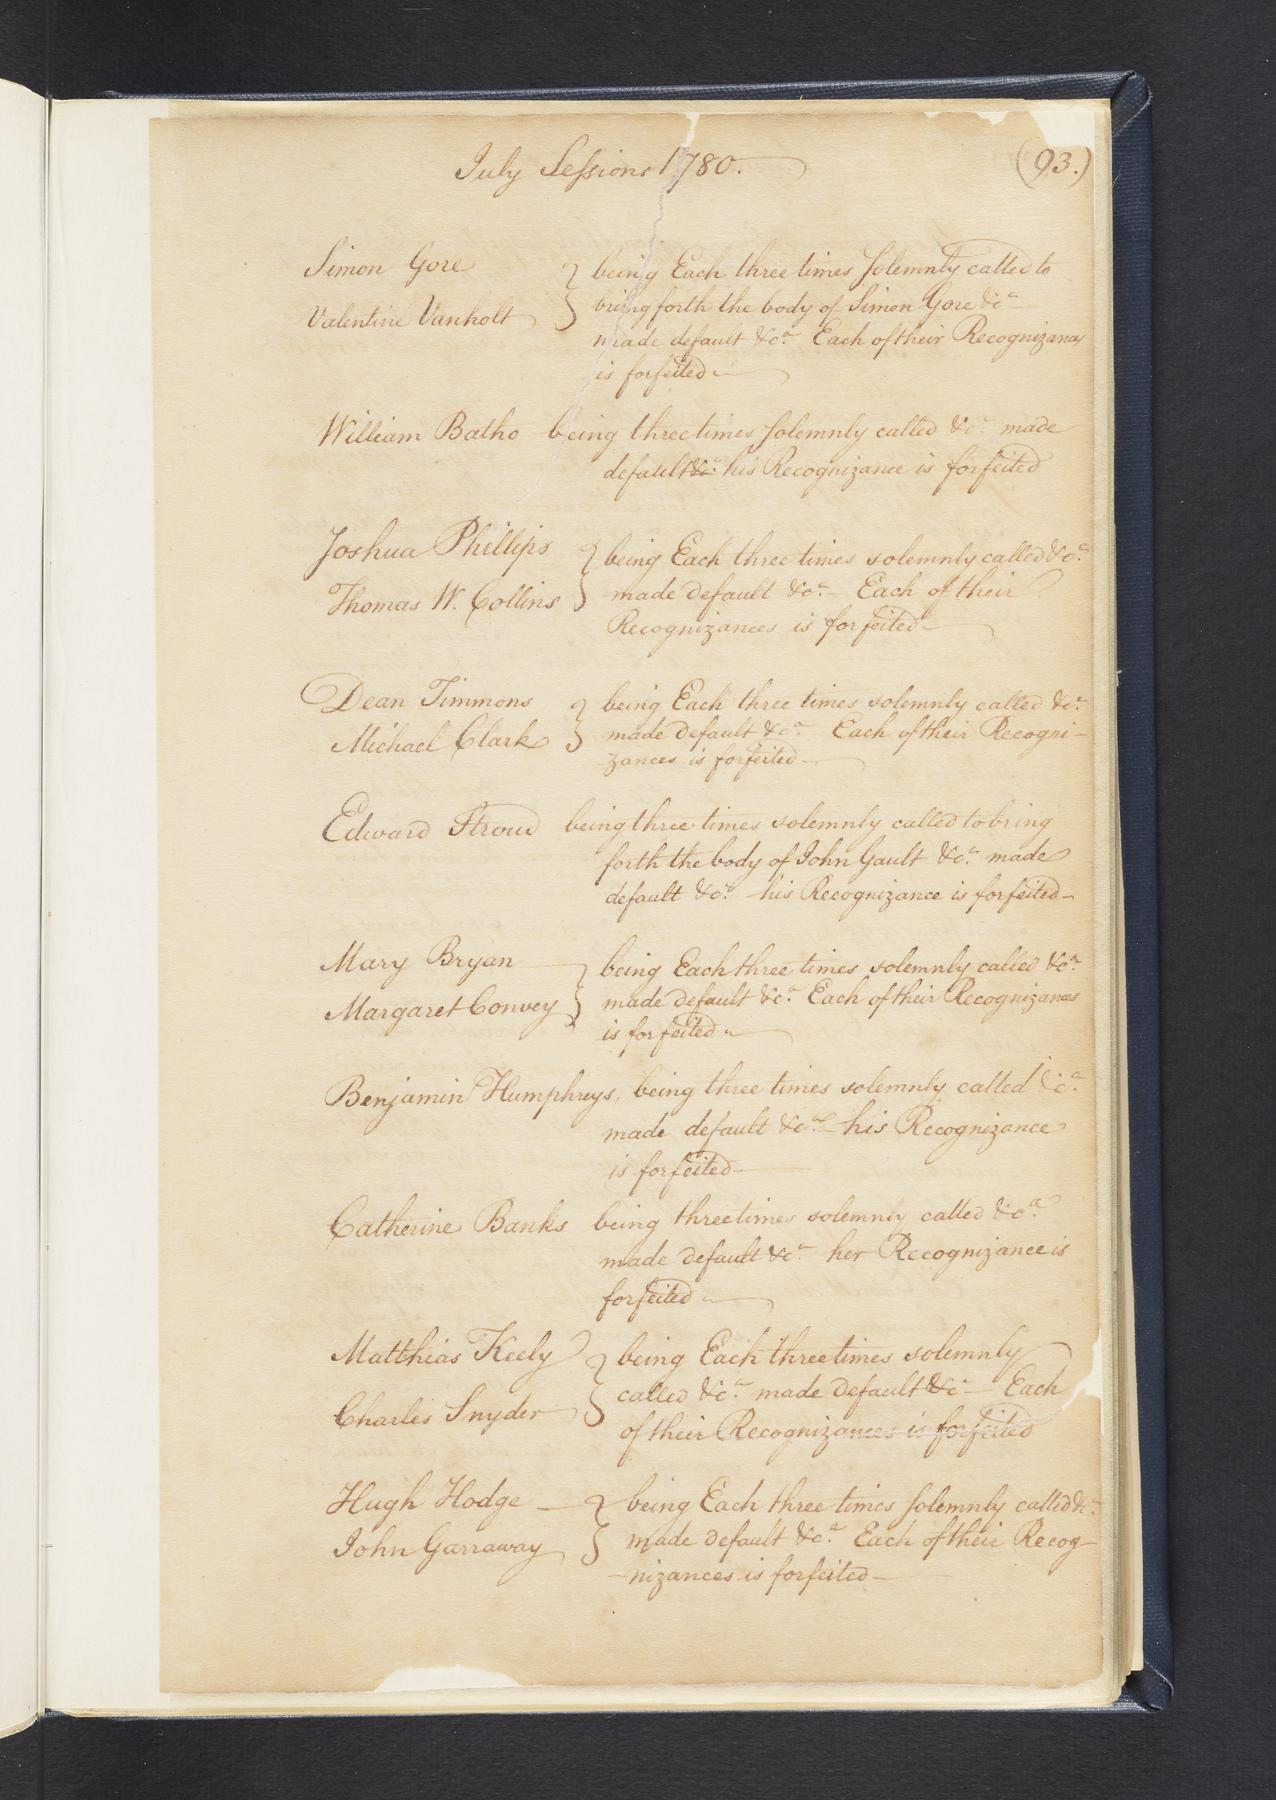 July Sessions 1780.
(93.)
Simon Gore } being Each three times solemnly called to
Valentine Vanholt } bring forth the body of Simon Gore &ca
made default &ca. Each of their Recognizances
is forfeited
William Batho being three times solemnly called &c. made
default &ca. his Recognizance is forfeited
Joshua Phillips } being Each three times solemnly called &ca.
Thomas W. Collins } made default &ca. Each of their
Recognizances is forfeited
Dean Timmons } being Each three times solemnly called &ca.
Michael Clark } made default &ca. Each of their Recogni-
zances is forfeited
Edward Stroud being three times solemnly called to bring
forth the body of John Gault &ca. made
default &ca. his Recognizance is forfeited
Mary Bryan } being Each three times solemnly called &ca.
Margaret Convey } made default &ca. Each of their Recognizances
is forfeited
Benjamin Humphreys, being three times solemnly called &ca.
made default &ca. his Recognizance
is forfeited
Catherine Banks being three times solemnly called &ca.
made default &ca. her Recognizance is
forfeited
Matthias Keely } being Each three times solemnly
Charles Snyder } called &ca. made default &ca Each
of their Recognizances is forfeited
Hugh Hodge } being Each three times solemnly called &c.
John Garraway } made default &ca. Each of their Recog-
-nizances is forfeited